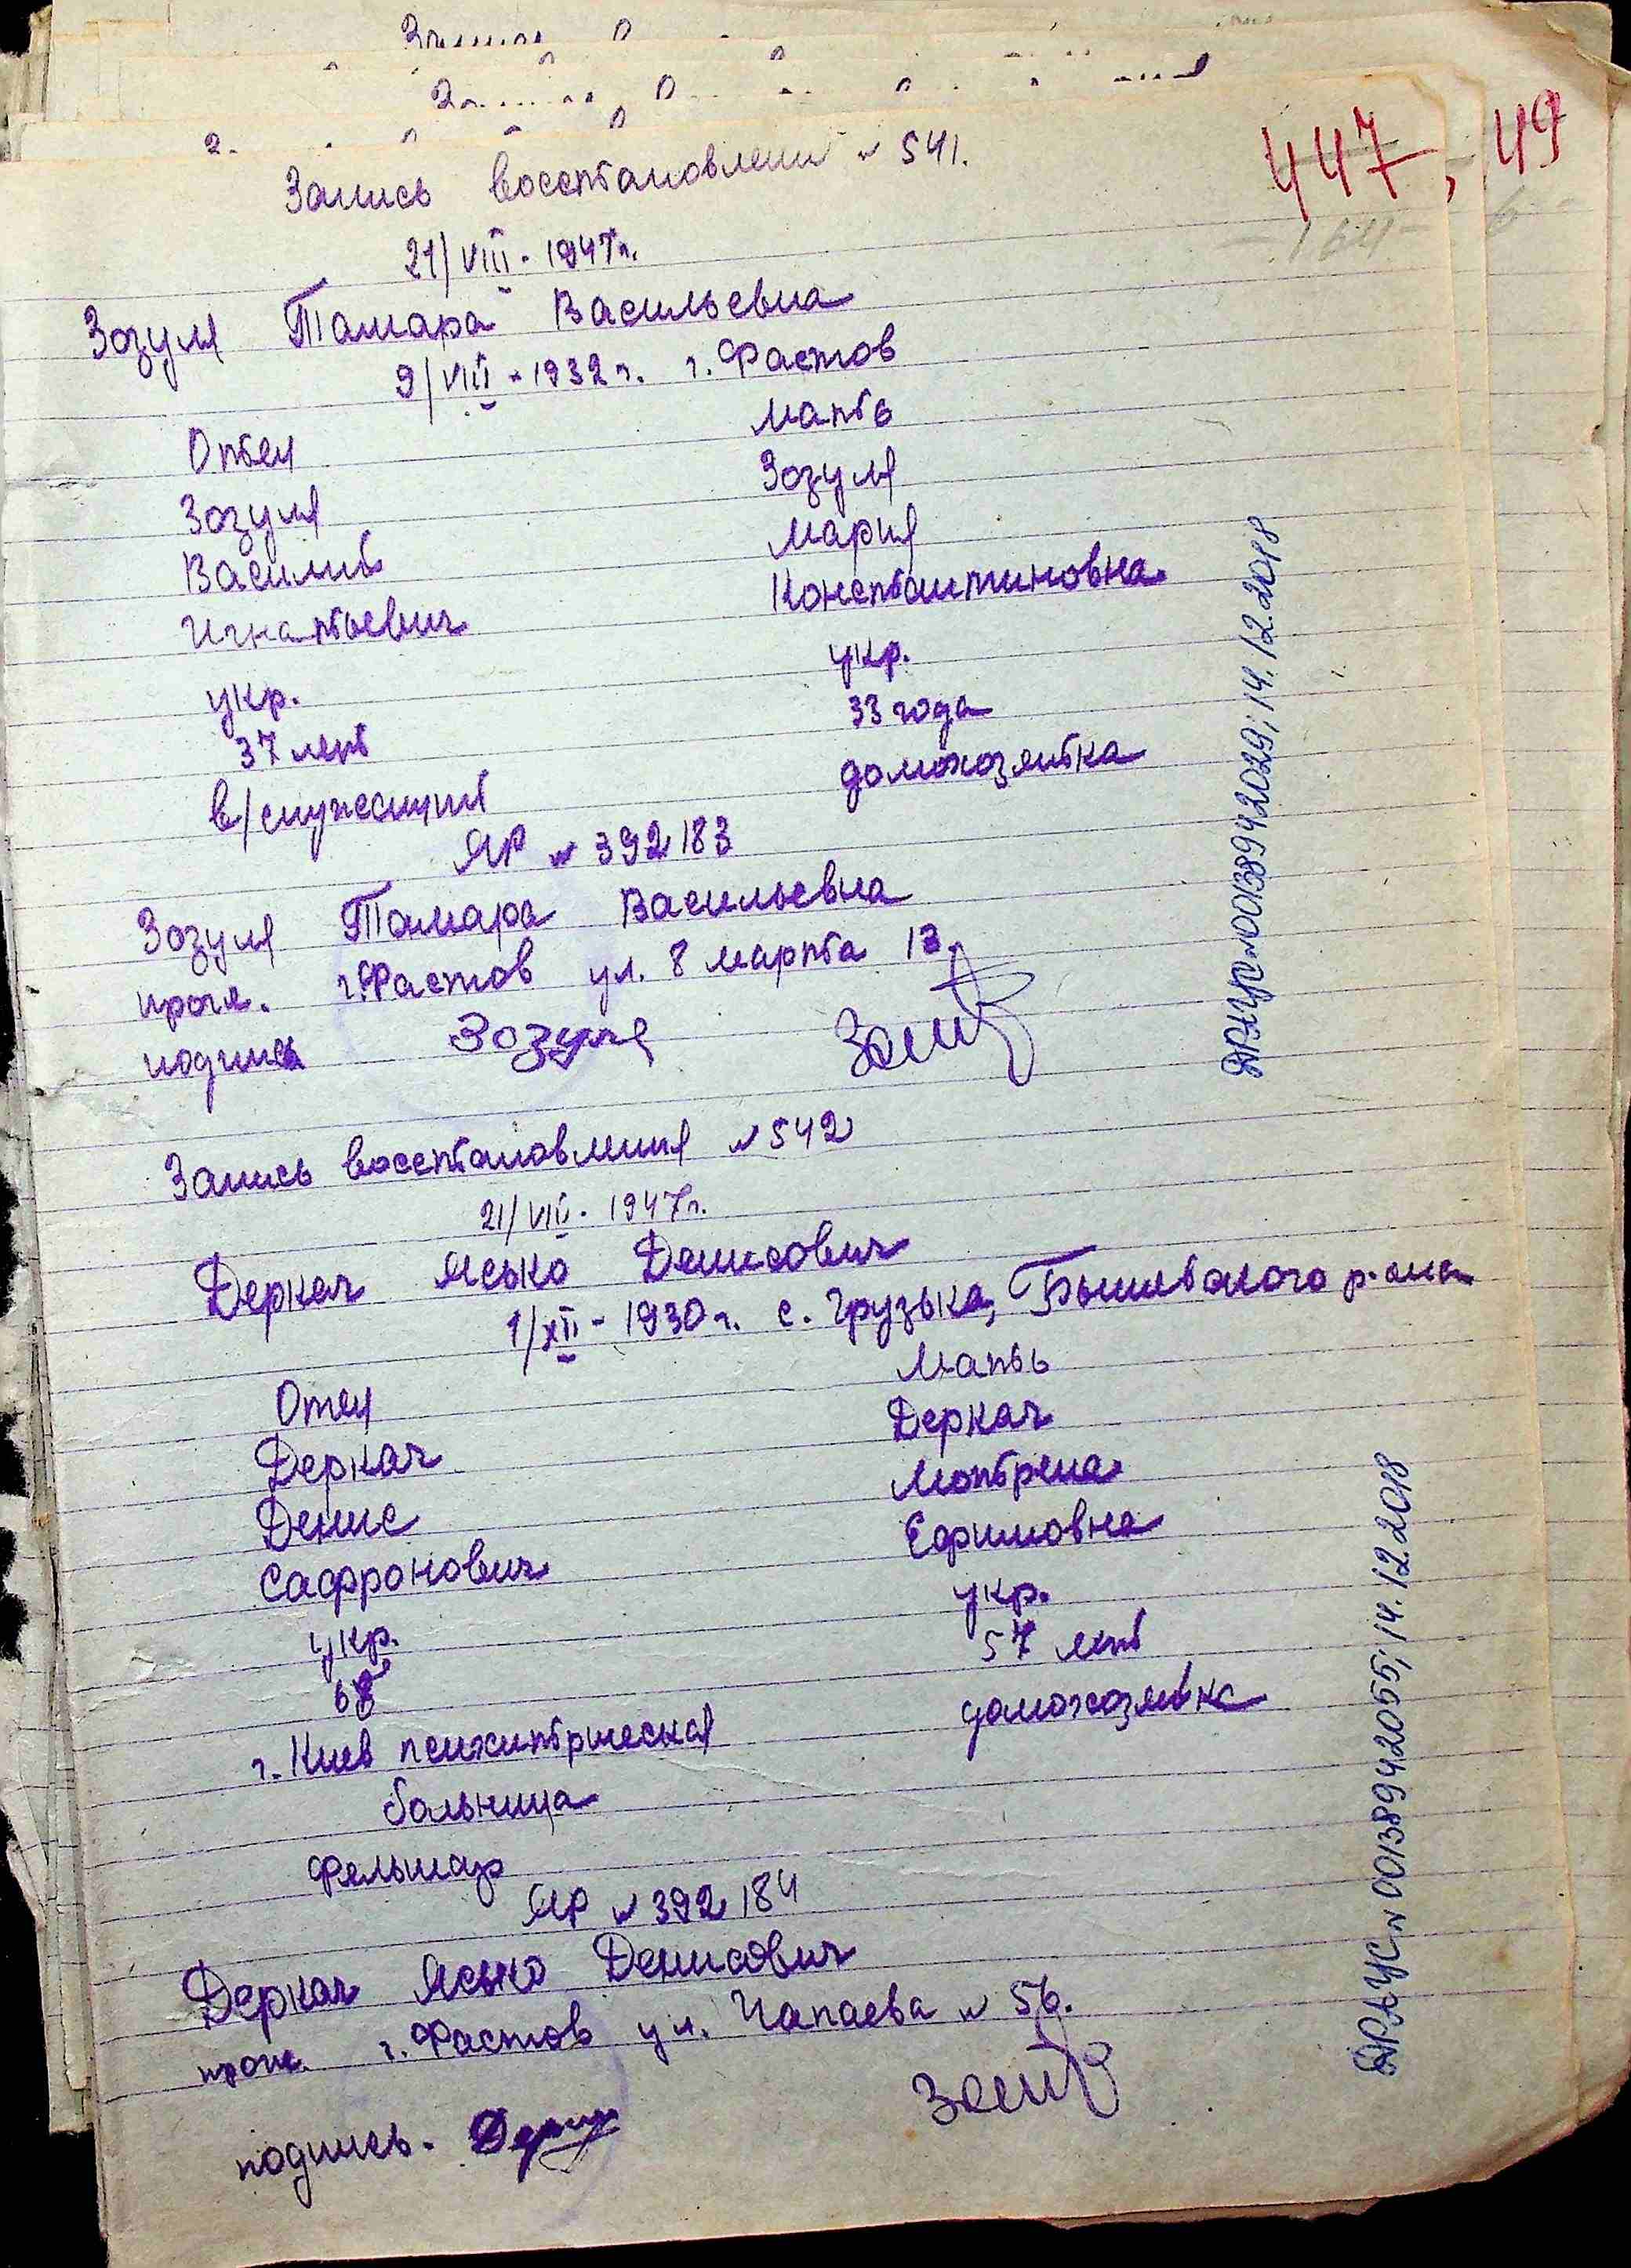 447, 49
164
Запись восстановлени № 541.
21/VIII - 1947г.
Зозуля Тамара Васильевна
9/VIII - 1932 г. г. Фастов
Отец Мать
Зозуля Зозуля
Василий Мария
Игнатьевич Константиновна
укр. укр.
37 лет 33 года
в/служащий домохозяйка
ЯР № 392183
Зозуля Тамара Васильевна
прож. г. Фастов ул. 8 марта 13.
подпись Зозуля
ДРАЦС №00138942029; 14.12.2018
Запись восстановления № 542
21/VIII - 1947г.
Деркач Яська Денисович
1/XII - 1930 г. с. Грузька, Бышевского р-она
Отец Мать
Деркач Деркач
Денис Мотрена
Сафронович Ефимовна
укр. укр.
68 57 лет
г. Киев психитрическая домохозяйка
больница
фельшар
ЯР № 392184
Деркач Яська Денисович
прож. г. Фастов ул. Чапаева № 56.
подпись.
ДРАЦС № 00138942055; 14.12.2018